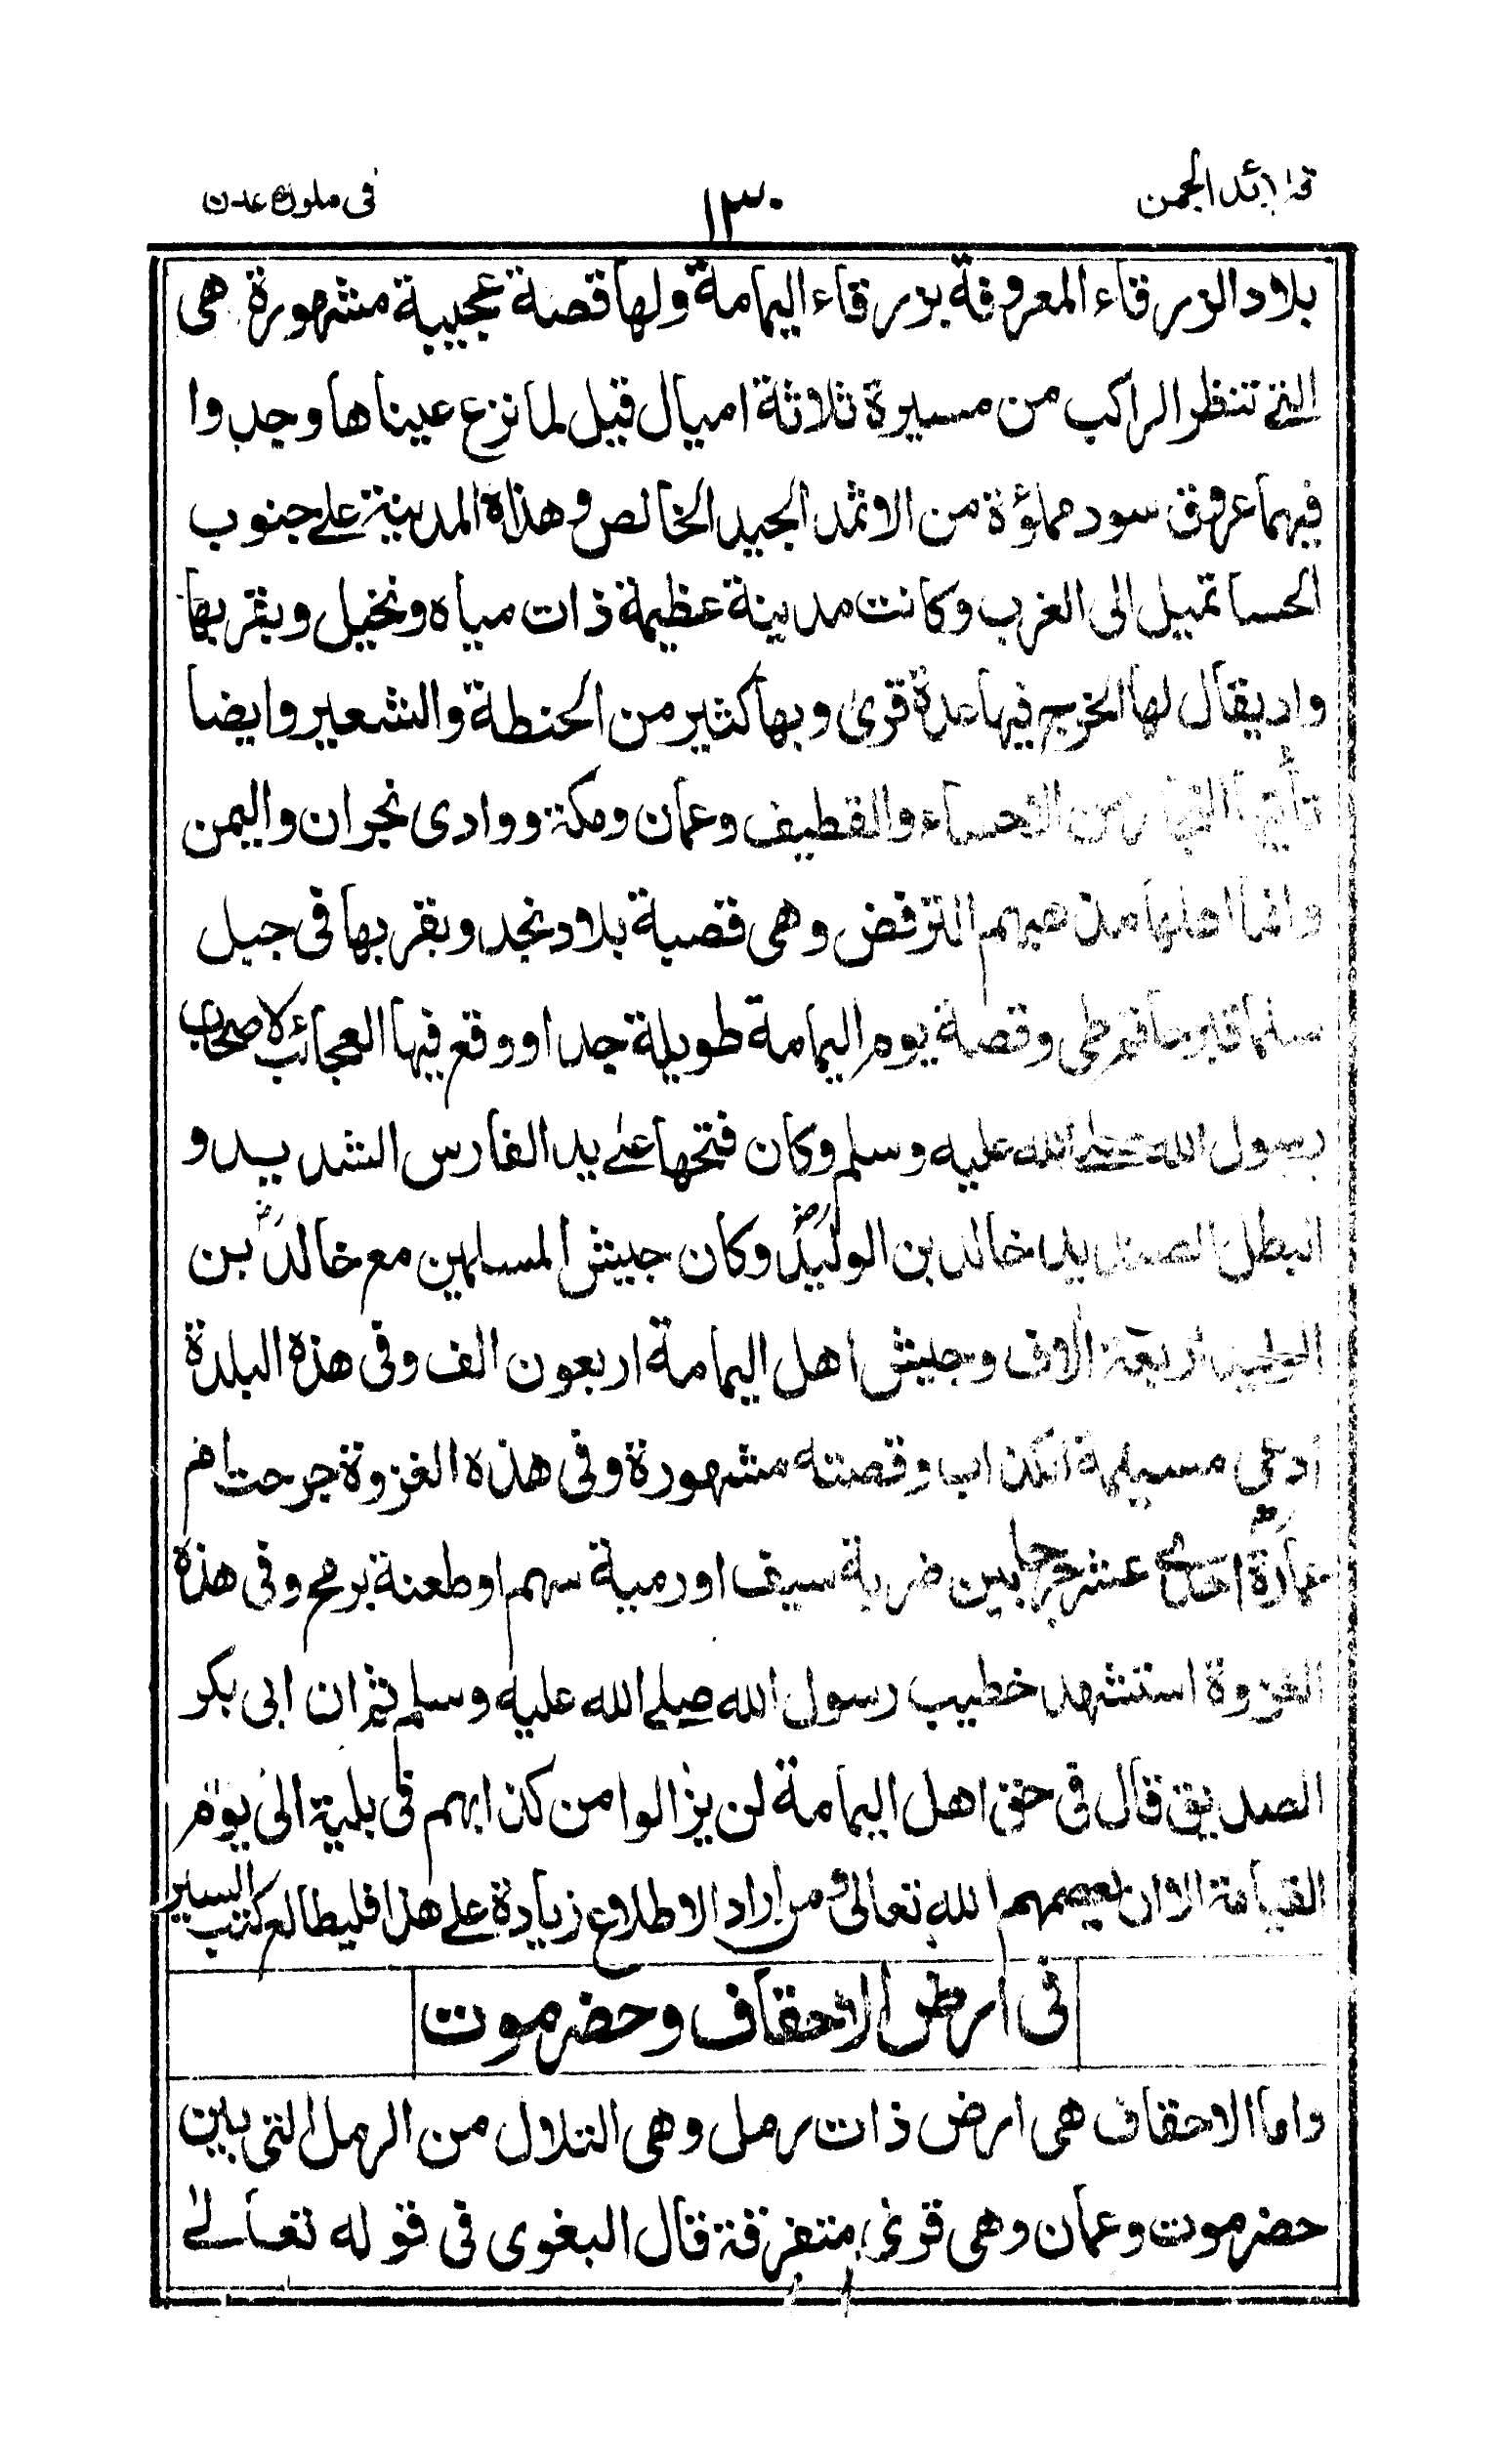 في ملوك عدن
١٣٠
بلاد الزرقاء المعروفة بزرقاء اليمامة ولها قصة عجيبة مشهورة هى
التے تنظر الراكب من مسيرة ثلاثة اميال قيل لما نزع عيناها وجدوا
فيهما عروق سود مملؤة من الاثمد الجيد الخالص وهذاه المدينة علے جنوب
الحسا تميل الى الغرب وكانت مدينة عظيمة ذات مياه ونخيل وبقربها
واد يقال لها الخرج فيها عدة قرى وبها كثير من الحنطة والشعير وايضا
تأتيها التجار من الاحساء والقطيف وعمان ومكة ووادى نجران واليمن
وانما اهلها مذهبهم الترفض وهى قصبة بلاد نجد وبقربها فى جبل
سلما قبر حاتم طى وقصة يوم اليمامة طويلة جدا ووقع فيها العجائب لاصحاب
رسول الله صلے الله عليه وسلم وكان فتحها علے يد الفارس الشديد و
البطل الصنديد خالد بن الوليدؓ وكان جيش المسلمين مع خالدؓ بن
الوليد اربعة الاف وجيش اهل اليمامة اربعون الف وفى هذه البلدة
ادعى مسيلمة الكذاب وقصته مشهورة وفى هذه الغزوة جرحت ام
عمارةؓ احدى عشر جرحا بين ضربة سيف او رمية سهم او طعنة برمح وفى هذه
الغزوة استشهد خطيب رسول الله صلے الله عليه وسلم ثم ان ابى بكر
الصديق قال فى حق اهل اليمامة لن يزالوا من كذابهم فى بلية الى يوم
القيامة الا ان يعصمهم الله تعالى ومن اراد الاطلاع زيادة علے هذا فليطالع كتب السير
فى ارض الاحقاف وحضرموت
واما الاحقاف هى ارض ذات رمل وهى التلال من الرمل التى بين
حضرموت وعمان وهى قرى متفرقة قال البغوى فى قوله تعالے